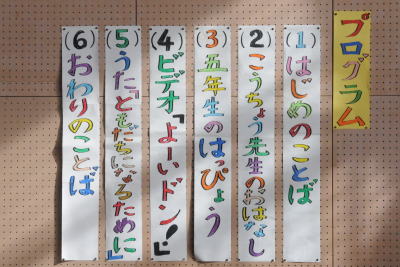 プログラム
(1)はじめのことば
(2)こうちょう先生のおはなし
(3)五年生のはっぴょう
(4)ビデオ「よーいドン!」
(5)うた「ともだちになるために」
(6)おわりのことば